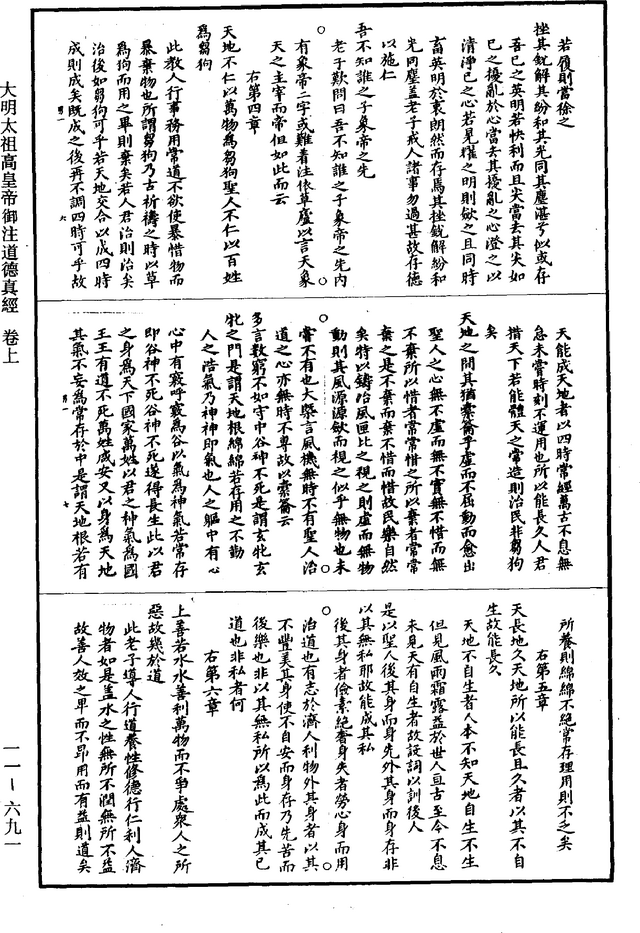 若履則當徐之
挫其銳解其紛和其光同其塵湛兮似或存
吾已之英明若快利而且尖當去其尖如
已之擾亂於心當去其擾亂之心澄之以
清淨已之心若見耀之明則斂之且同時
畜英明於衷朗然而存焉其挫銳解紛和
光同塵蓋老子戒人諸事勿過甚故存德
以施仁
吾不知誰之子象帝之先
老子歎問曰吾不知誰之子象帝之先內
有象帝二字或難着注依草廬以言天象
天之主宰而帝但如此而云
右第四章
天地不仁以萬物為芻狗聖人不仁以百姓
為芻狗
此教人行事務用常道不欲使暴惜物而
暴棄物也所謂芻狗乃古祈禱之時以草
為狗而用之畢則棄矣若人君治則治矣
治後如芻狗可乎若天地交合以成四時
成則成矣既成之後再不調四時可乎故
天能成天地者以四時常經萬古不息無
息未嘗時刻不運用也所以能長久人君
措天下若能體天之常造則治民非芻狗
矣
天地之間其猶橐籥乎虛而不屈動而愈出
聖人之心無不虛而無不實無不惜而無
不棄所以惜者常常惜之所以棄者常常
棄之是不棄而棄不惜而惜故民樂自然
矣特以鑄冶風匣比之視之則虛而無物
動則其風源源斂而視之似乎無物也未
嘗不有也大槩言風機無時不有聖人治
道之心亦無時不專故以橐籥云
多言數窮不如守中谷神不死是謂玄牝玄
牝之門是謂天地根綿綿若存用之不勤
人之浩氣乃神神即氣也人之軀中有心
心中有竅呼竅為谷以氣為神氣若常存
即谷神不死谷神不死遂得長生此以君
之身為天下國家萬姓以君之神氣為國
王王有道不死萬姓咸安又以身為天地
其氣不妄為常存於中是謂天地根若有
所養則綿綿不絕常存理用則不乏矣
右第五章
天長地久天地所以能長且久者以其不自
生故能長久
天地不自生者人本不知天地自生不生
但見風雨霜露益於世人亘古至今不息
未見天有自生者故設詞以訓後人
是以聖人後其身而身先外其身而身存非
以其無私邪故能成其私
後其身者儉素絕奢身先者勞心身而用
治道也有志於濟人利物外其身者以其
不豐美其身使不自安而身存乃先苦而
後樂也非以其無私所以為此而成其己
道也非私者何
右第六章
上善若水水善利萬物而不爭處衆人之所
惡故幾於道
此老子導人行道養性修德行仁利人濟
物者如是蓋水之性無所不潤無所不益
故善人效之卑而不昂用而有益則道矣
大明太祖高皇帝御注道德真經 卷上
一一—六九一